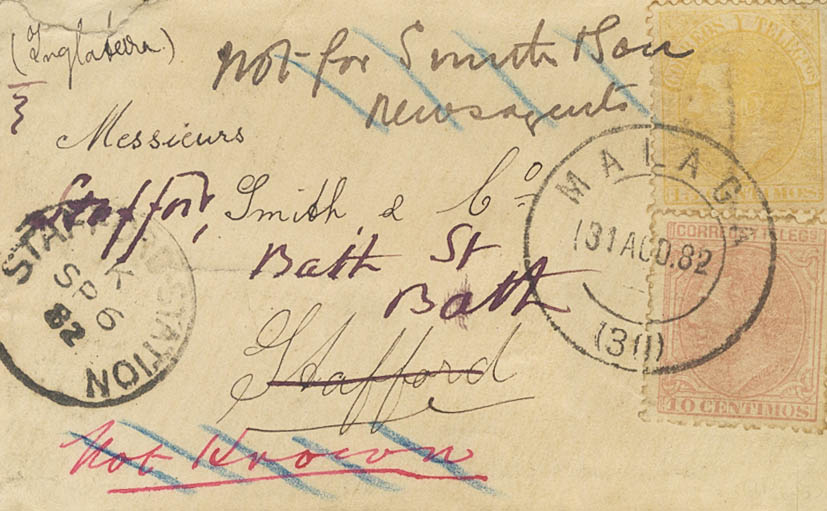 (Inglaterra)
Not for Smith & Son
Newsagents
Messieurs
Stafford, Smith, & Co.
Bath St
Bath
Stafford
Not Known
MALAGA
31 AGO.82
(30)
STAFFORD STATION
K
SP 6
82
CORREOS Y TELEGS
15 CENTIMOS
CORREOS Y TELEGS
10 CENTIMOS